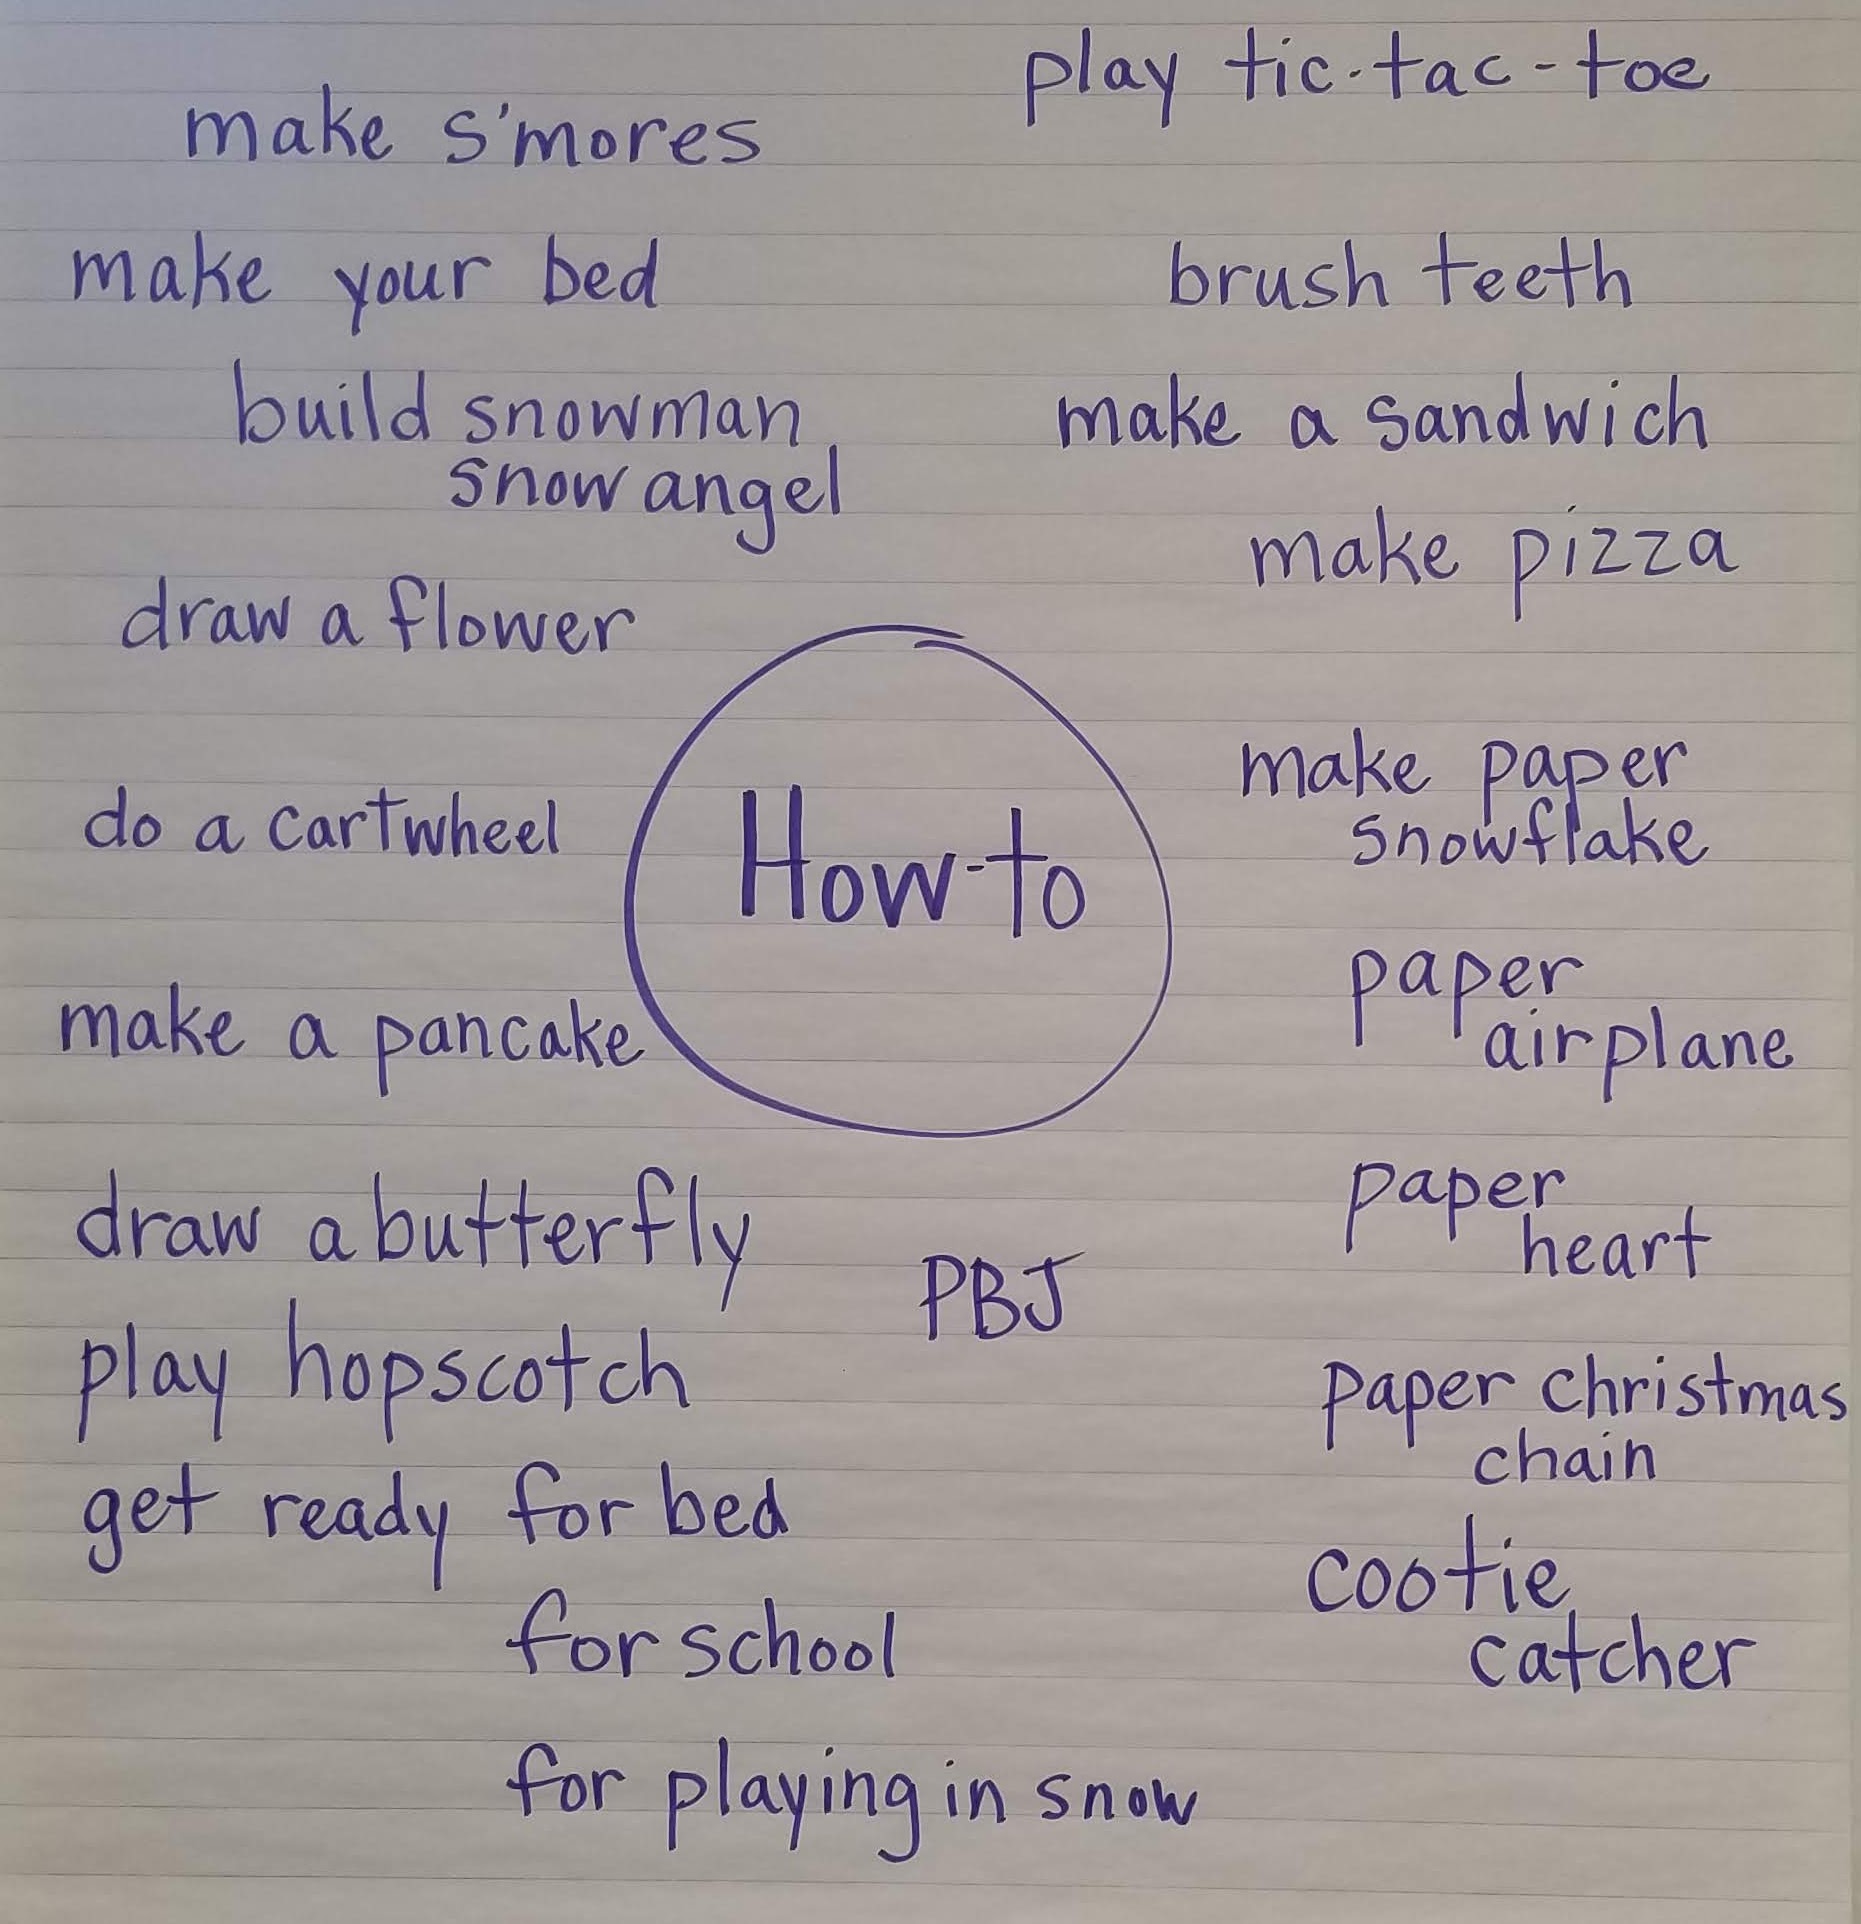 play tic-tac-toe
make s'mores
make your bed
brush teeth
build snowman
snow angel
make a sandwich
make pizza
draw a flower
How-to
make paper
snowflake
do a cartwheel
paper
airplane
make a pancake
paper
heart
draw a butterfly
PBJ
play hopscotch
paper christmas
chain
get ready for bed
for school
for playing in snow
cootie
catcher